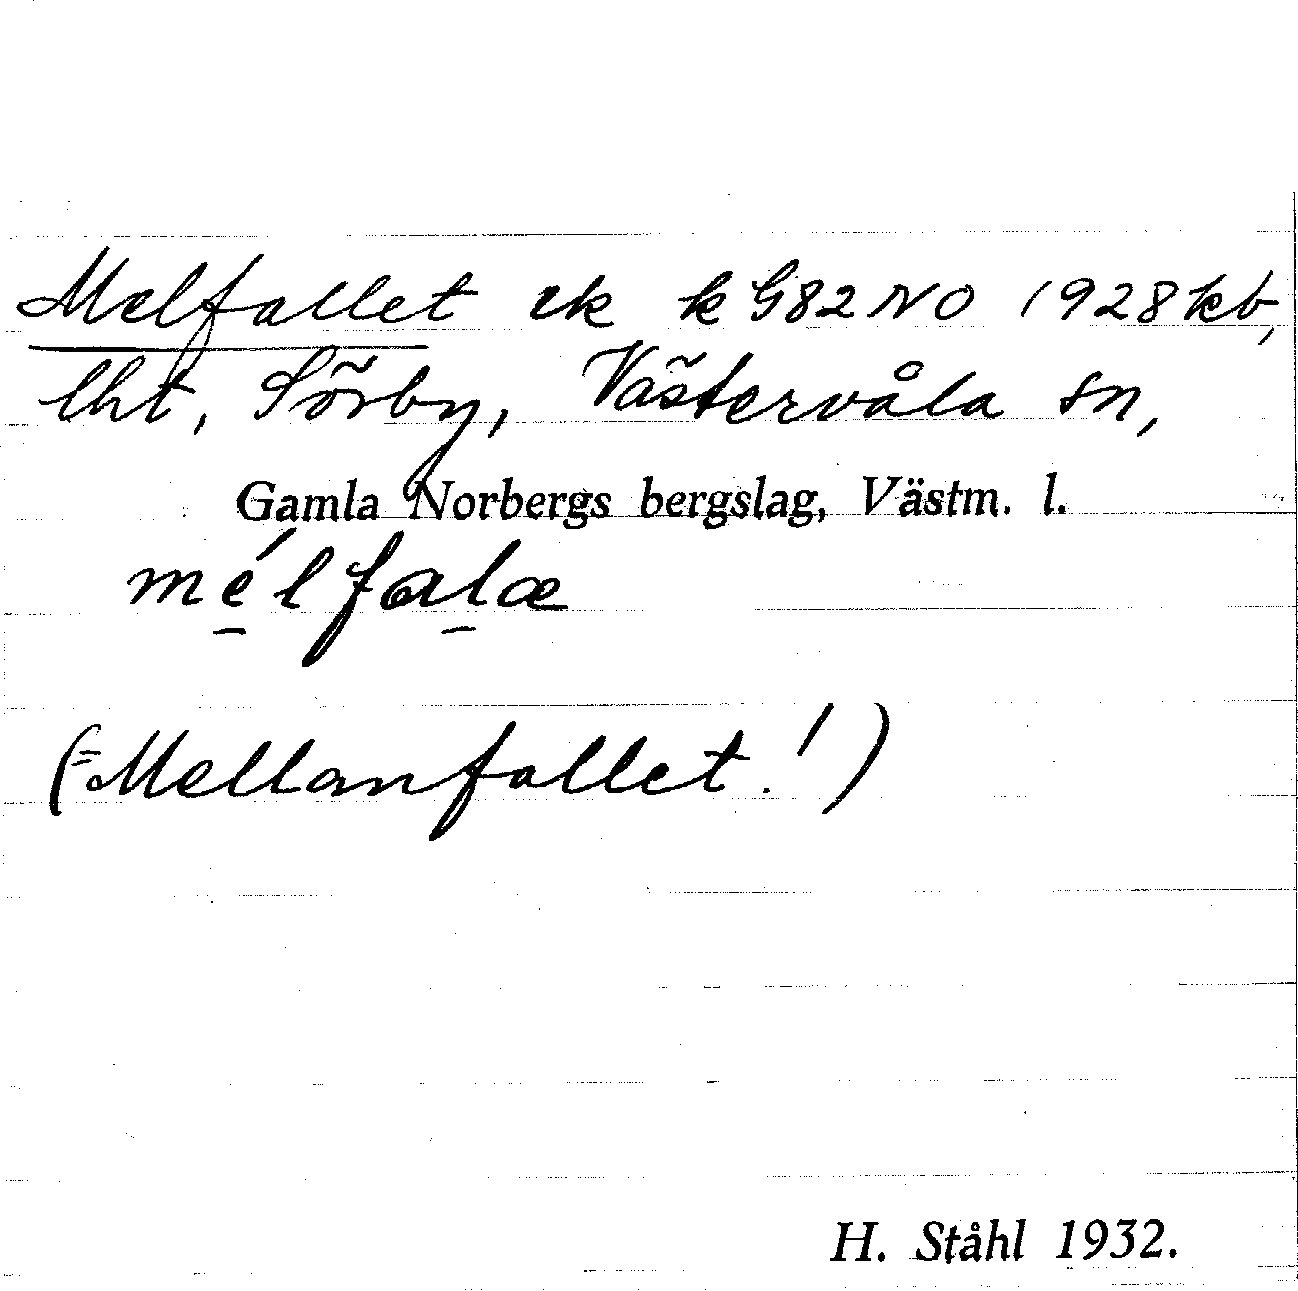 Melfallet ek k G82 NO 1928 kb,
lht, Sörby, Västervåla sn,
Gamla Norbergs bergslag, Västm. l.
mé̱lfal̠æ
(=Mellanfallet!)
H. Ståhl 1932.